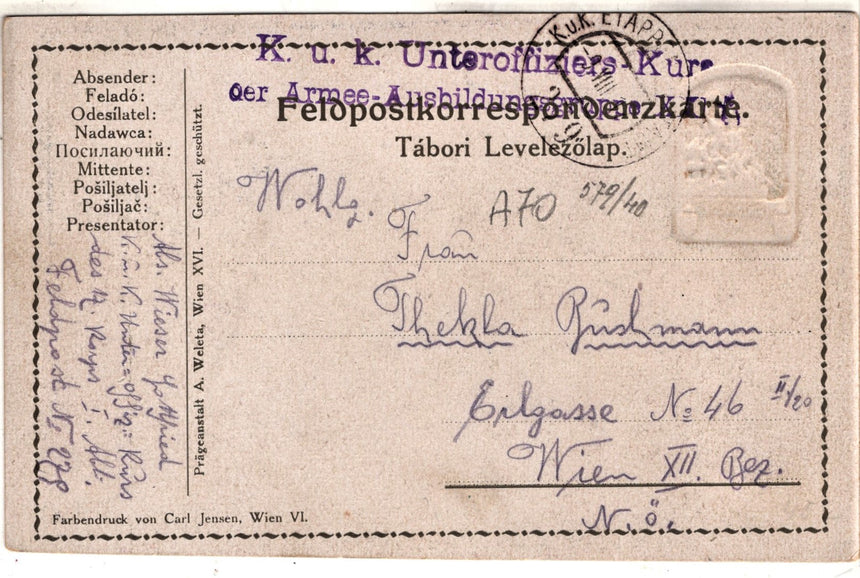 K. u. k. Unteroffiziers-Kurs
der Armee-Ausbildungsgruppe
K.u.K. ETAPP
Feldpostkorrespondenzkarte.
Tábori Levelezőlap.
Absender:
Feladó:
Odesílatel:
Nadawca:
Посилаючий:
Mittente:
Pošiljatelj:
Pošiljač:
Presentator:
Als. Wieser Gottfried
K. u. K. Unteroffiz: Kurs
des A. Korps Abt.
Feldpost No 278
Prägeanstalt A. Weleta, Wien XVI. — Gesetzl. geschützt.
Wohlg.
A70 579/40
Frau
Thekla Buschmann
Erlgasse No 46 II/20
Wien XII. Bez.
N.Ö.
Farbendruck von Carl Jensen, Wien VI.